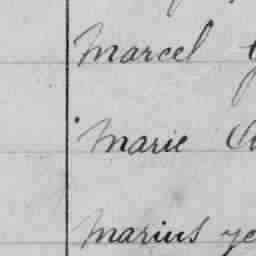 Marcel
Marie
Marius